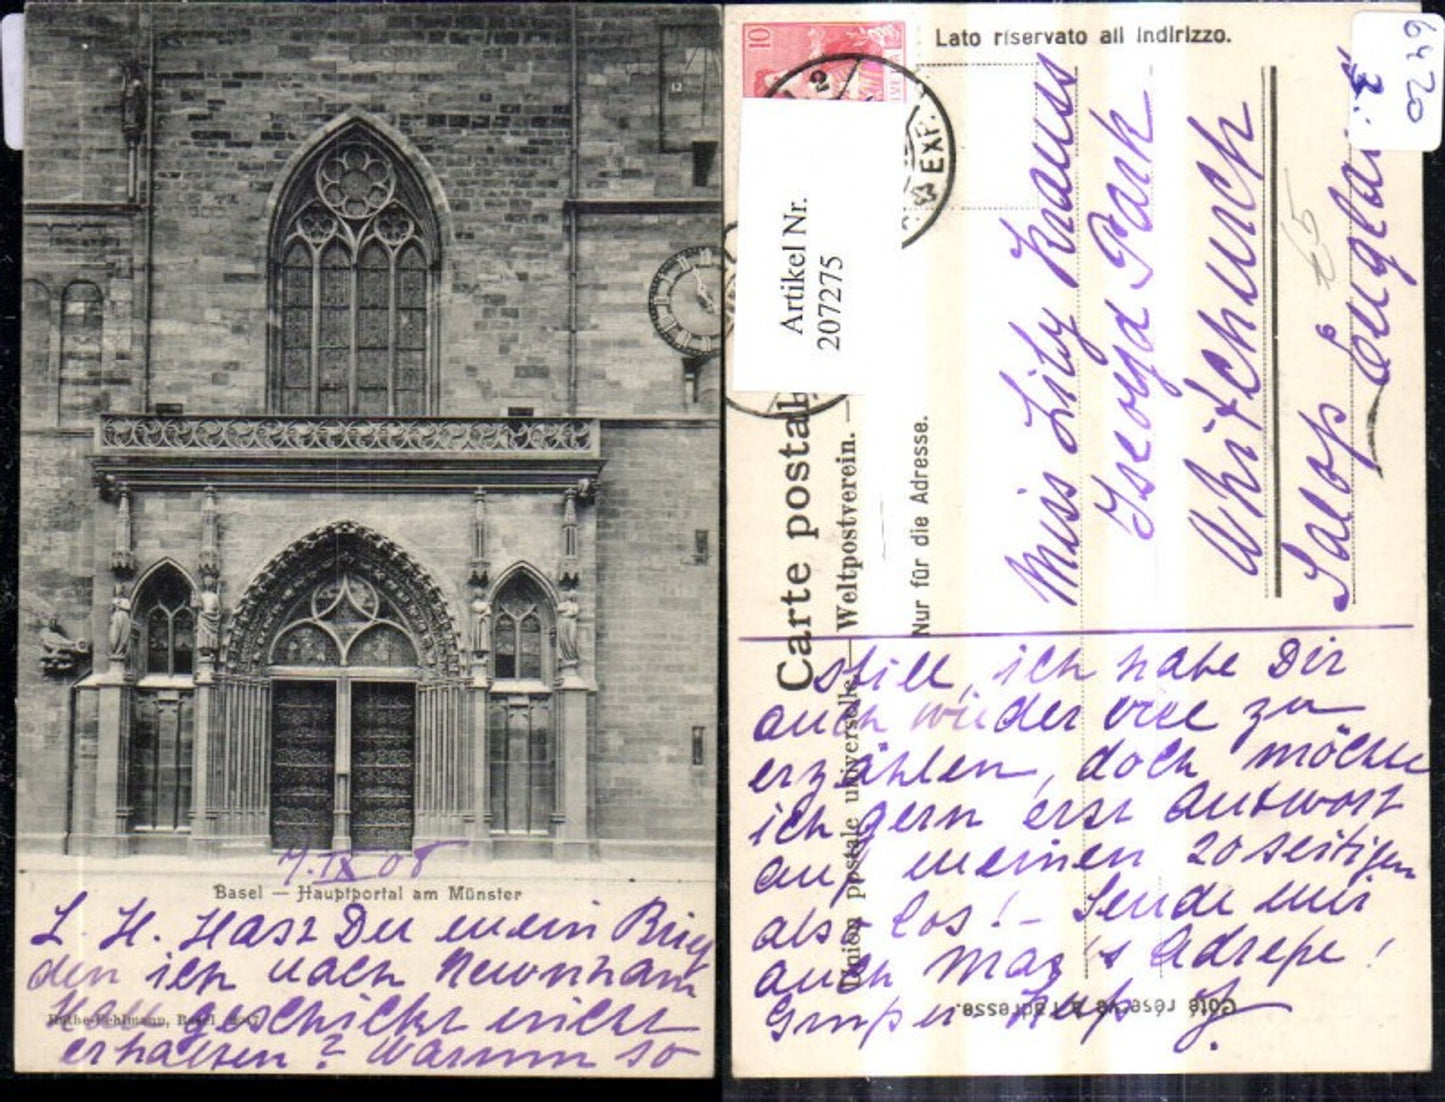 7. IX 08
Basel — Hauptportal am Münster
L. H. Hast Du mein Brief
den ich nach Newnham
Hall geschickt nicht
erhalten? Warum so
Lato riservato all indirizzo.
10
EXP.
6420
Artikel Nr.
207275
Carte postale
Union postale universelle. — Weltpostverein. —
Nur für die Adresse.
Côté réservé à l'adresse.
Miss Lily Krauss
Iscoyd Park
Whitchurch
Salop England
£5
still, ich habe Dir
auch wieder viel zu
erzählen, doch möchte
ich gern erst Antwort
auf meinen 20 seitigen
also los! – Sende mir
auch Max's Adresse!
Gruss